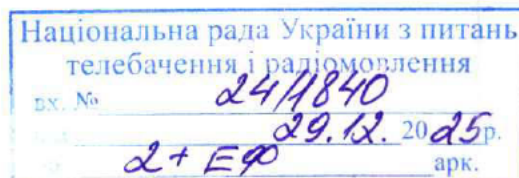 Національна рада України з питань
телебачення і радіомовлення
вх. № 24/1840
29.12. 2025р.
2+ЕФ арк.